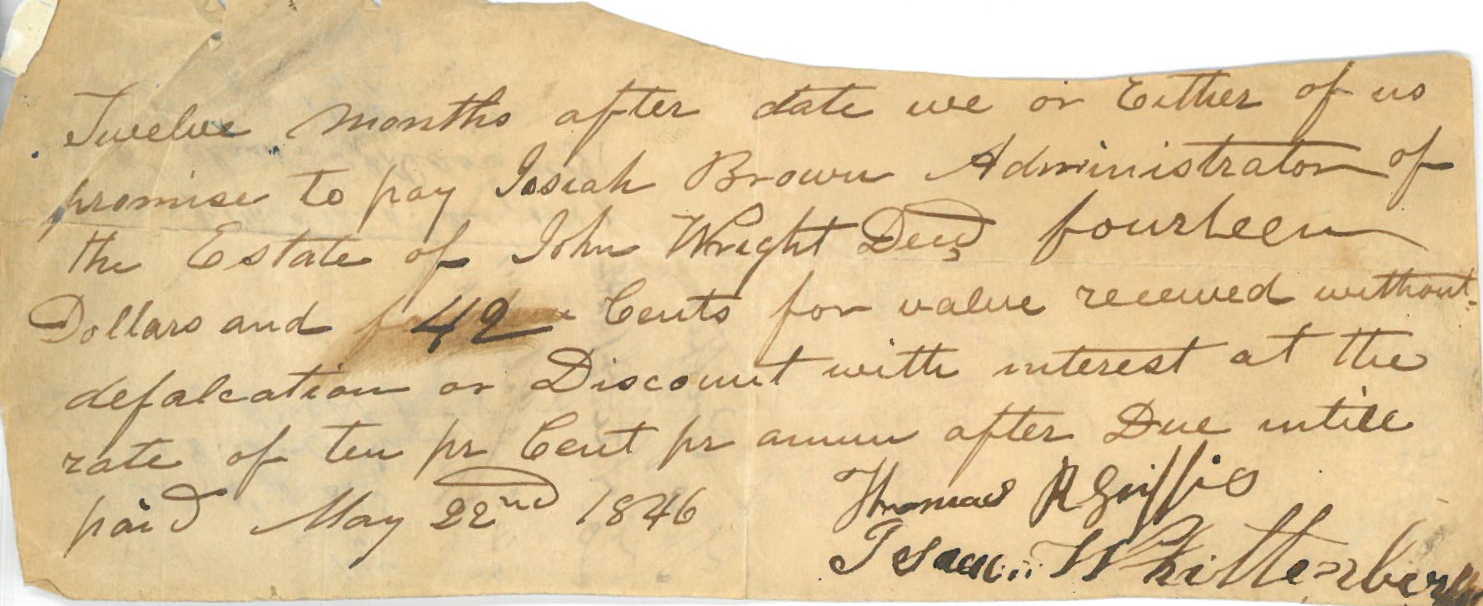 Twelve months after date we or Either of us
promise to pay Josiah Brown Administrator of
the Estate of John Wright Decd fourteen
Dollars and 42 Cents for value received without
defalcation or Discount with interest at the
rate of ten pr Cent pr annum after Due untill
paid May 22nd 1846
Thomas R Griffis
Isaac Whittenberg